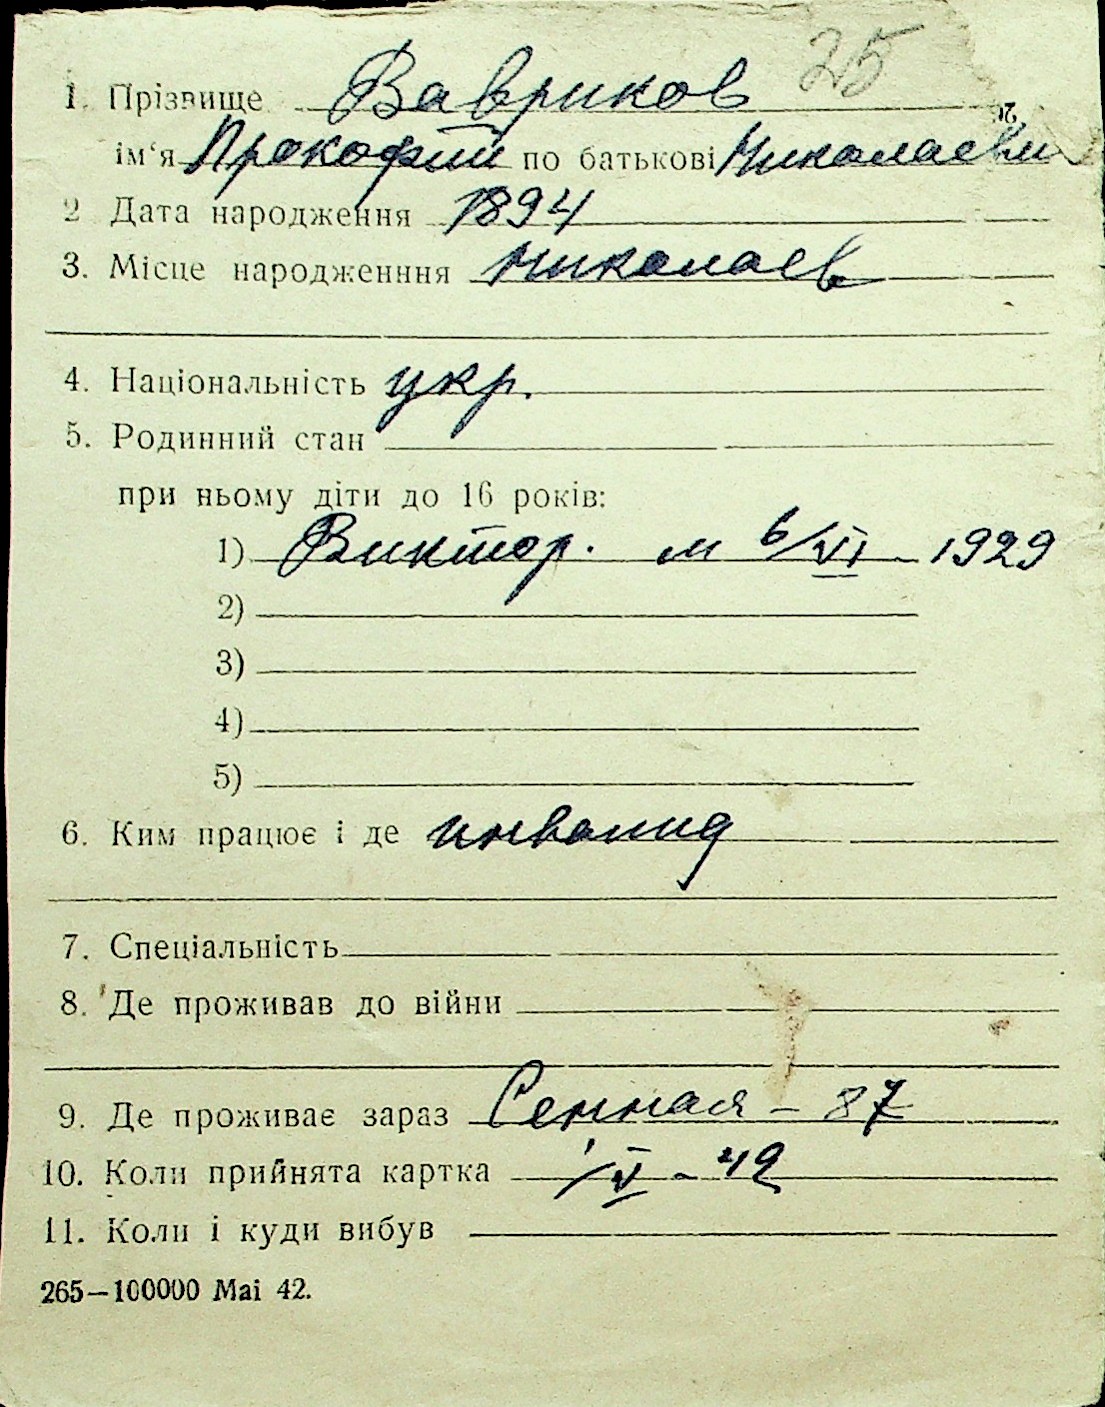 25
1. Прізвище Вавриков
ім'я Прокофий по батькові Николаеви
2 Дата народження 1894
3. Місце народженння Николаев
4. Національність укр.
5. Родинний стан
при ньому діти до 16 років:
1) Виктор. м 6/VI - 1929
2)
3)
4)
5)
6. Ким працює і де инвалид
7. Спеціальність
8. Де проживав до війни
9. Де проживає зараз Сенная - 87
10. Коли прийнята картка 1/V - 42
11. Коли і куди вибув
265—100000 Mai 42.